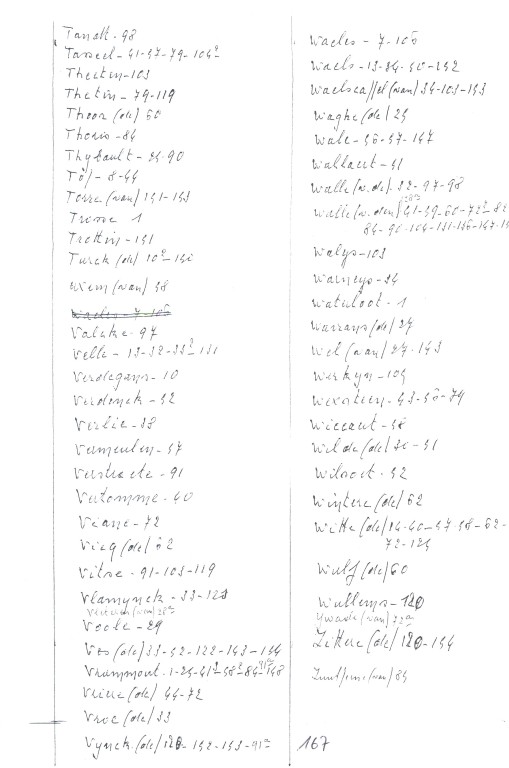 Tanalt - 98
Tasseel - 41-57-79-104ᵃ
Theeten - 103
Thetin - 79-119
Thoor (de) 60
Thoris - 84
Thybault - 90
Töl - 8-44
Torre (van) 151-153
Trosse 1
Trottin - 151
Turck (de) 10ᵃ
(van) 58
Waeles - 7-106
Valcke - 97
Velle - 13-32-33ᵃ 131
Verdegans - 10
Verdonck - 52
Verlie - 38
Vermeulen - 57
Verstraete - 91
Vertomme - 40
Viane - 72
Vicq (de) 62
Vitse - 91-103-119
Vlamynck - 33-123
(van)
Voole - 29
Vos (de) 33-52-122-143-154
Vrammout - 1-25-41ᵃ-58ᵃ-84-148
Vriere (de) 44-72
Vroe (de) 33
Vynck (de) 126-152-153-91ᵃ
Waeles - 7-106
Waels - 13-84-50-152
(van) 34-103-153
Waghe (de) 25
Wale - 56-57-147
Wallaert - 51
Walle (v. de) 32-97-98
Walle (v. den) 41-59-60-72ᵃ-82
84-90-104-131-136-147-15
Walys - 103
Warneys - 34
Waterloot - 1
Warrans (de) 27
Wel (van) 27-143
Werkyn - 104
Wexsteen - 43-56-79
Wiccaert - 58
Wilde (de) 51
Wilsoet - 52
Wintere (de) 62
Witte (de) 14-40-57-58-62-
72-124
Wulf (de) 60
Wullems - 120
(van) 72ᵃ
Zittere (de) 120-154
(van) 84
167